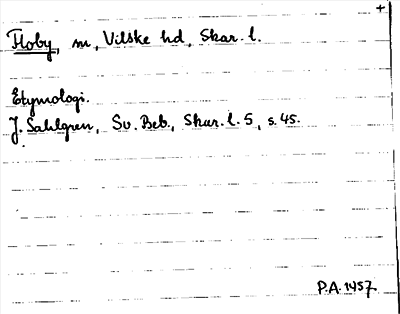 +
Floby, m, Vilske hd, Skar. l.
Etymologi.
J. Sahlgren, Sv. Beb., Skar. l. 5, s. 45.
P.A. 1457